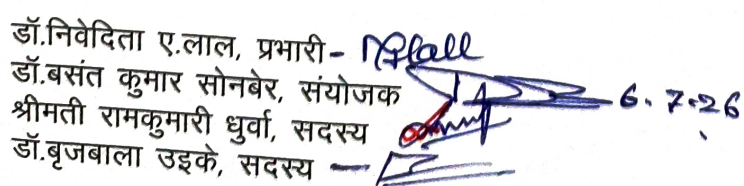 डॉ.निवेदिता ए.लाल, प्रभारी-
डॉ.बसंत कुमार सोनबेर, संयोजक 6.7.26
श्रीमती रामकुमारी धुर्वा, सदस्य
डॉ.बृजबाला उइके, सदस्य —